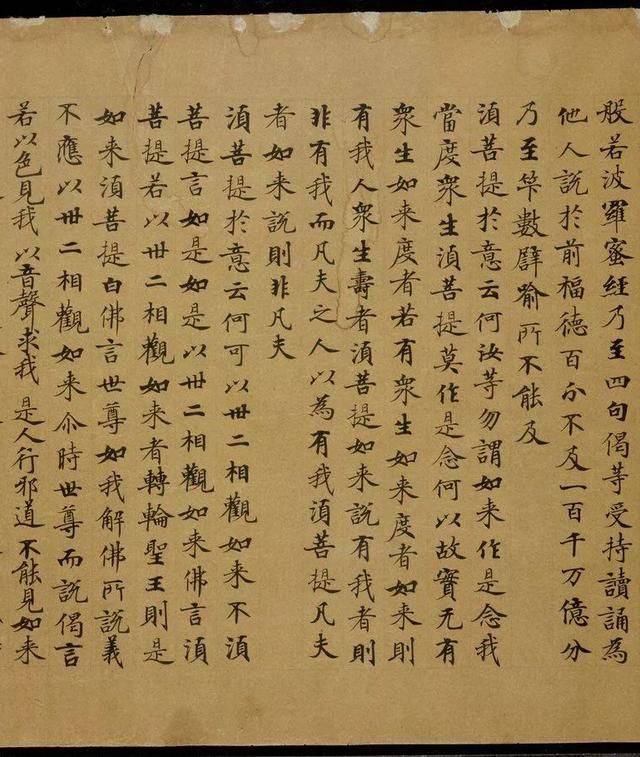 般若波羅蜜經乃至四句偈等受持讀誦為
他人說於前福德百分不及一百千万億分
乃至笇數譬喻所不能及
湏菩提於意云何汝等勿謂如来作是念我
當度衆生湏菩提莫作是念何以故實无有
衆生如来度者若有衆生如来度者如来則
有我人衆生壽者湏菩提如来說有我者則
非有我而凡夫之人以為有我湏菩提凡夫
者如来說則非凡夫
湏菩提於意云何可以卅二相觀如来不湏
菩提言如是如是以卅二相觀如来佛言湏
菩提若以卅二相觀如来者轉輪聖王則是
如来湏菩提白佛言世尊如我解佛所說義
不應以卅二相觀如来尒時世尊而說偈言
若以色見我以音聲求我是人行邪道不能見如来